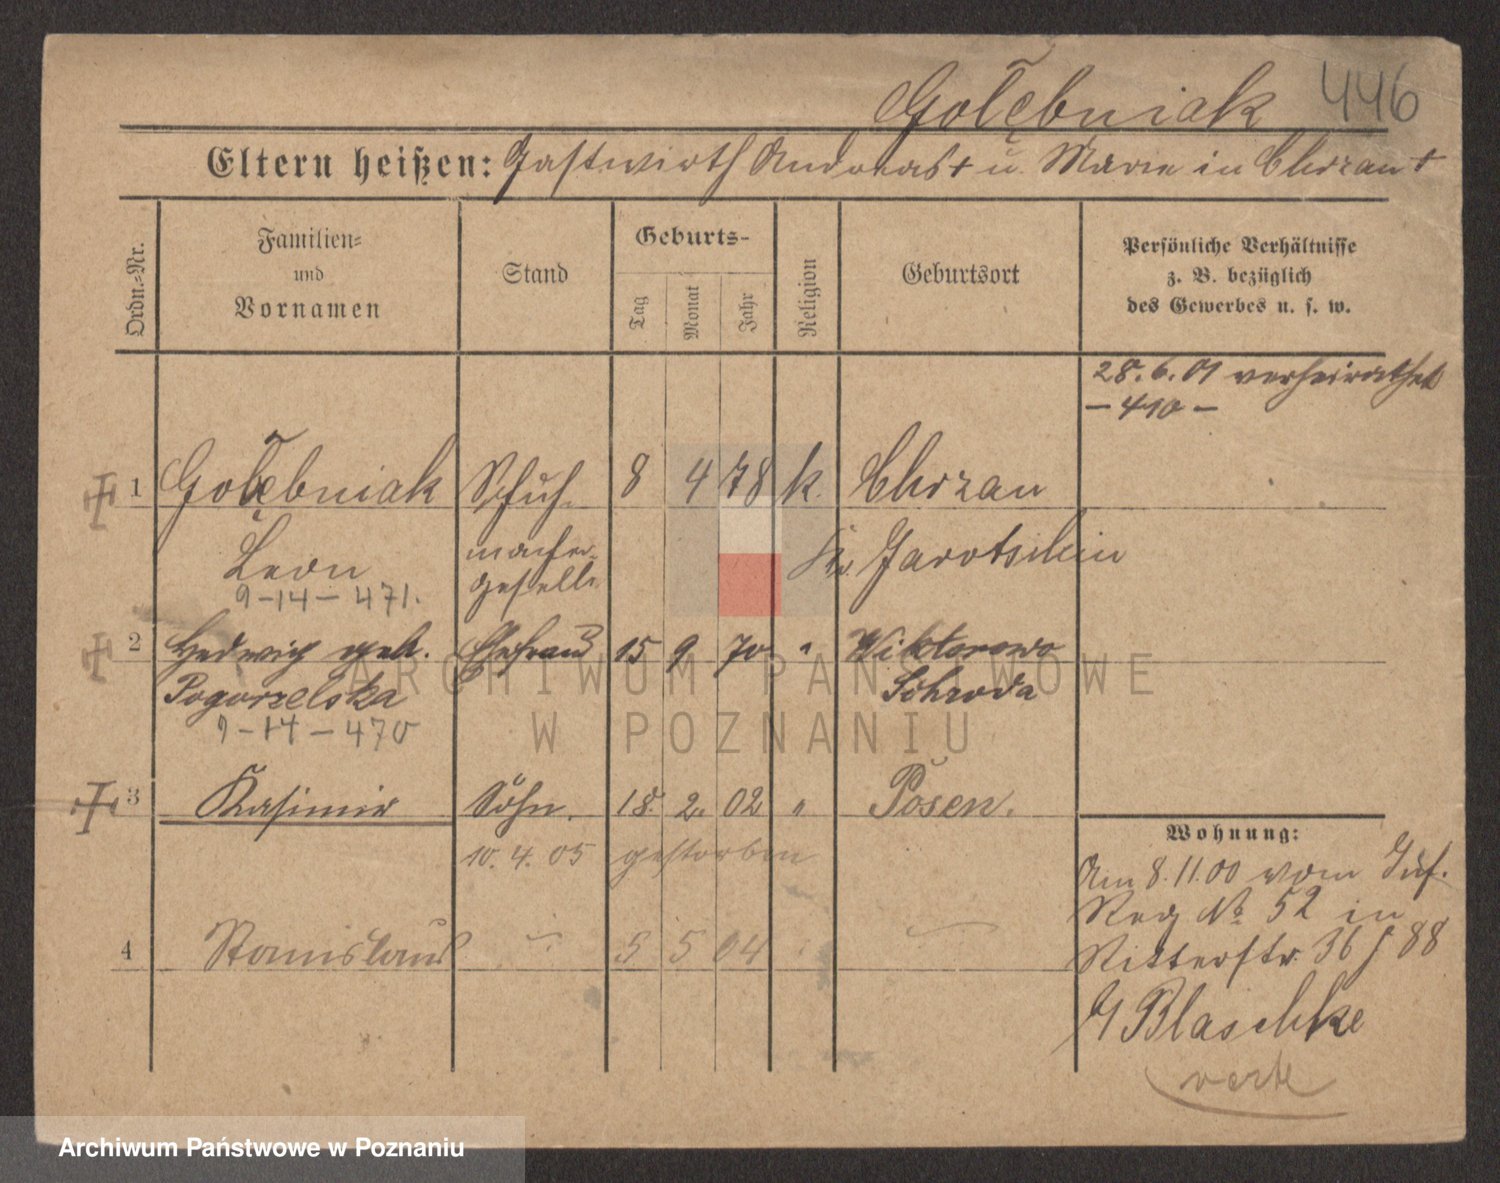 Gołębniak 446
Eltern heißen: Gastwirth Andreas + u. Marie in Chrzan +
Ordn.-Nr.
Familien-
und
Vornamen
Stand
Geburts-
Tag
Monat
Jahr
Religion
Geburtsort
Persönliche Verhältnisse
z. B. bezüglich
des Gewerbes u. s. w.
28.6.01 verheirathet
– 410 –
1 Gołębniak Schuh- 8 4 78 k. Chrzan
Leon macher- Kr. Jarotschin
geselle
9-14-471.
2 Hedwig geb. Ehefrau 15 9 70 " Wiktorowo
Pogorzelska Schroda
9-14-470
3 Kasimir Sohn. 18. 2. 02 " Posen.
10. 4. 05 gestorben
4 Stanislaus 5 5 04
Wohnung:
Am 8.11.00 vom Inf.
Reg No 52 in
Ritterstr. 36 88
Blaschke
verte
ARCHIWUM PAŃSTWOWE
W POZNANIU
Archiwum Państwowe w Poznaniu